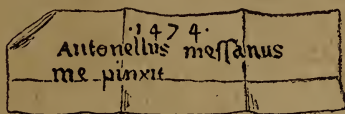 ·1474·
Antonellus meſſanus
me pinxit